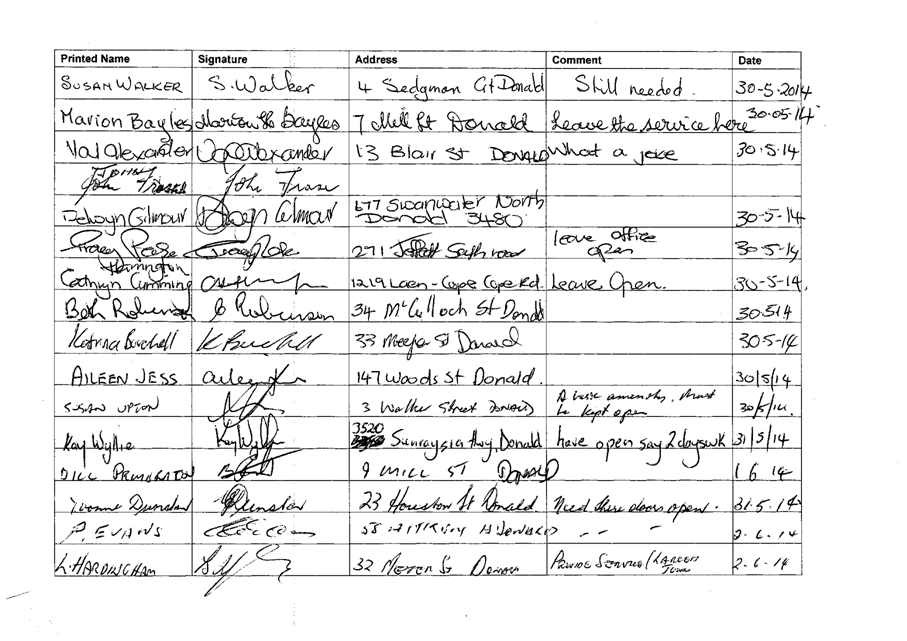 Printed Name Signature Address Comment Date
SUSAN WALKER S. Walker 4 Sedgman Crt Donald Still needed. 30-5-2014
Marion Bayles Marion Bayles 7 Mill St Donald Leave the service here 30.05.14
Val Alexander Alexander 13 Blair St DONALD What a joke 30.5.14
John John Frase
Delwyn Gilmour Delwyn Gilmour 677 Swanwater North
Donald 3480 30-5-14
271 Jeffcott South road leave office
open 30-5-14
Harrington
Cathryn Cumming 1219 Laen-Cope Cope Rd. Leave Open. 30-5-14.
Beth Robinson B Robinson 34 McCulloch St Donald 30514
Katrina Burchell K Burchell 33 Meyer St Donald 305-14
AILEEN JESS 147 Woods St Donald. 30/5/14
SUSAN UPTON 3 Walker Street DONALD A basic amenity. Must
be kept open 30/5/14.
Kay Wyllie Kay Wyll 3520
Sunraysia Hwy, Donald have open say 2 days wk 31/5/14
9 MILL ST DONALD 1 6 14
Yvonne Dunstan Dunstan 23 Houston St Donald Need these doors open. 31.5.14
P. EVANS DONALD -- - 2.6.14
L. HARDINGHAM 32 MEYER St DONALD PROVIDE SERVICE / 2-6-14